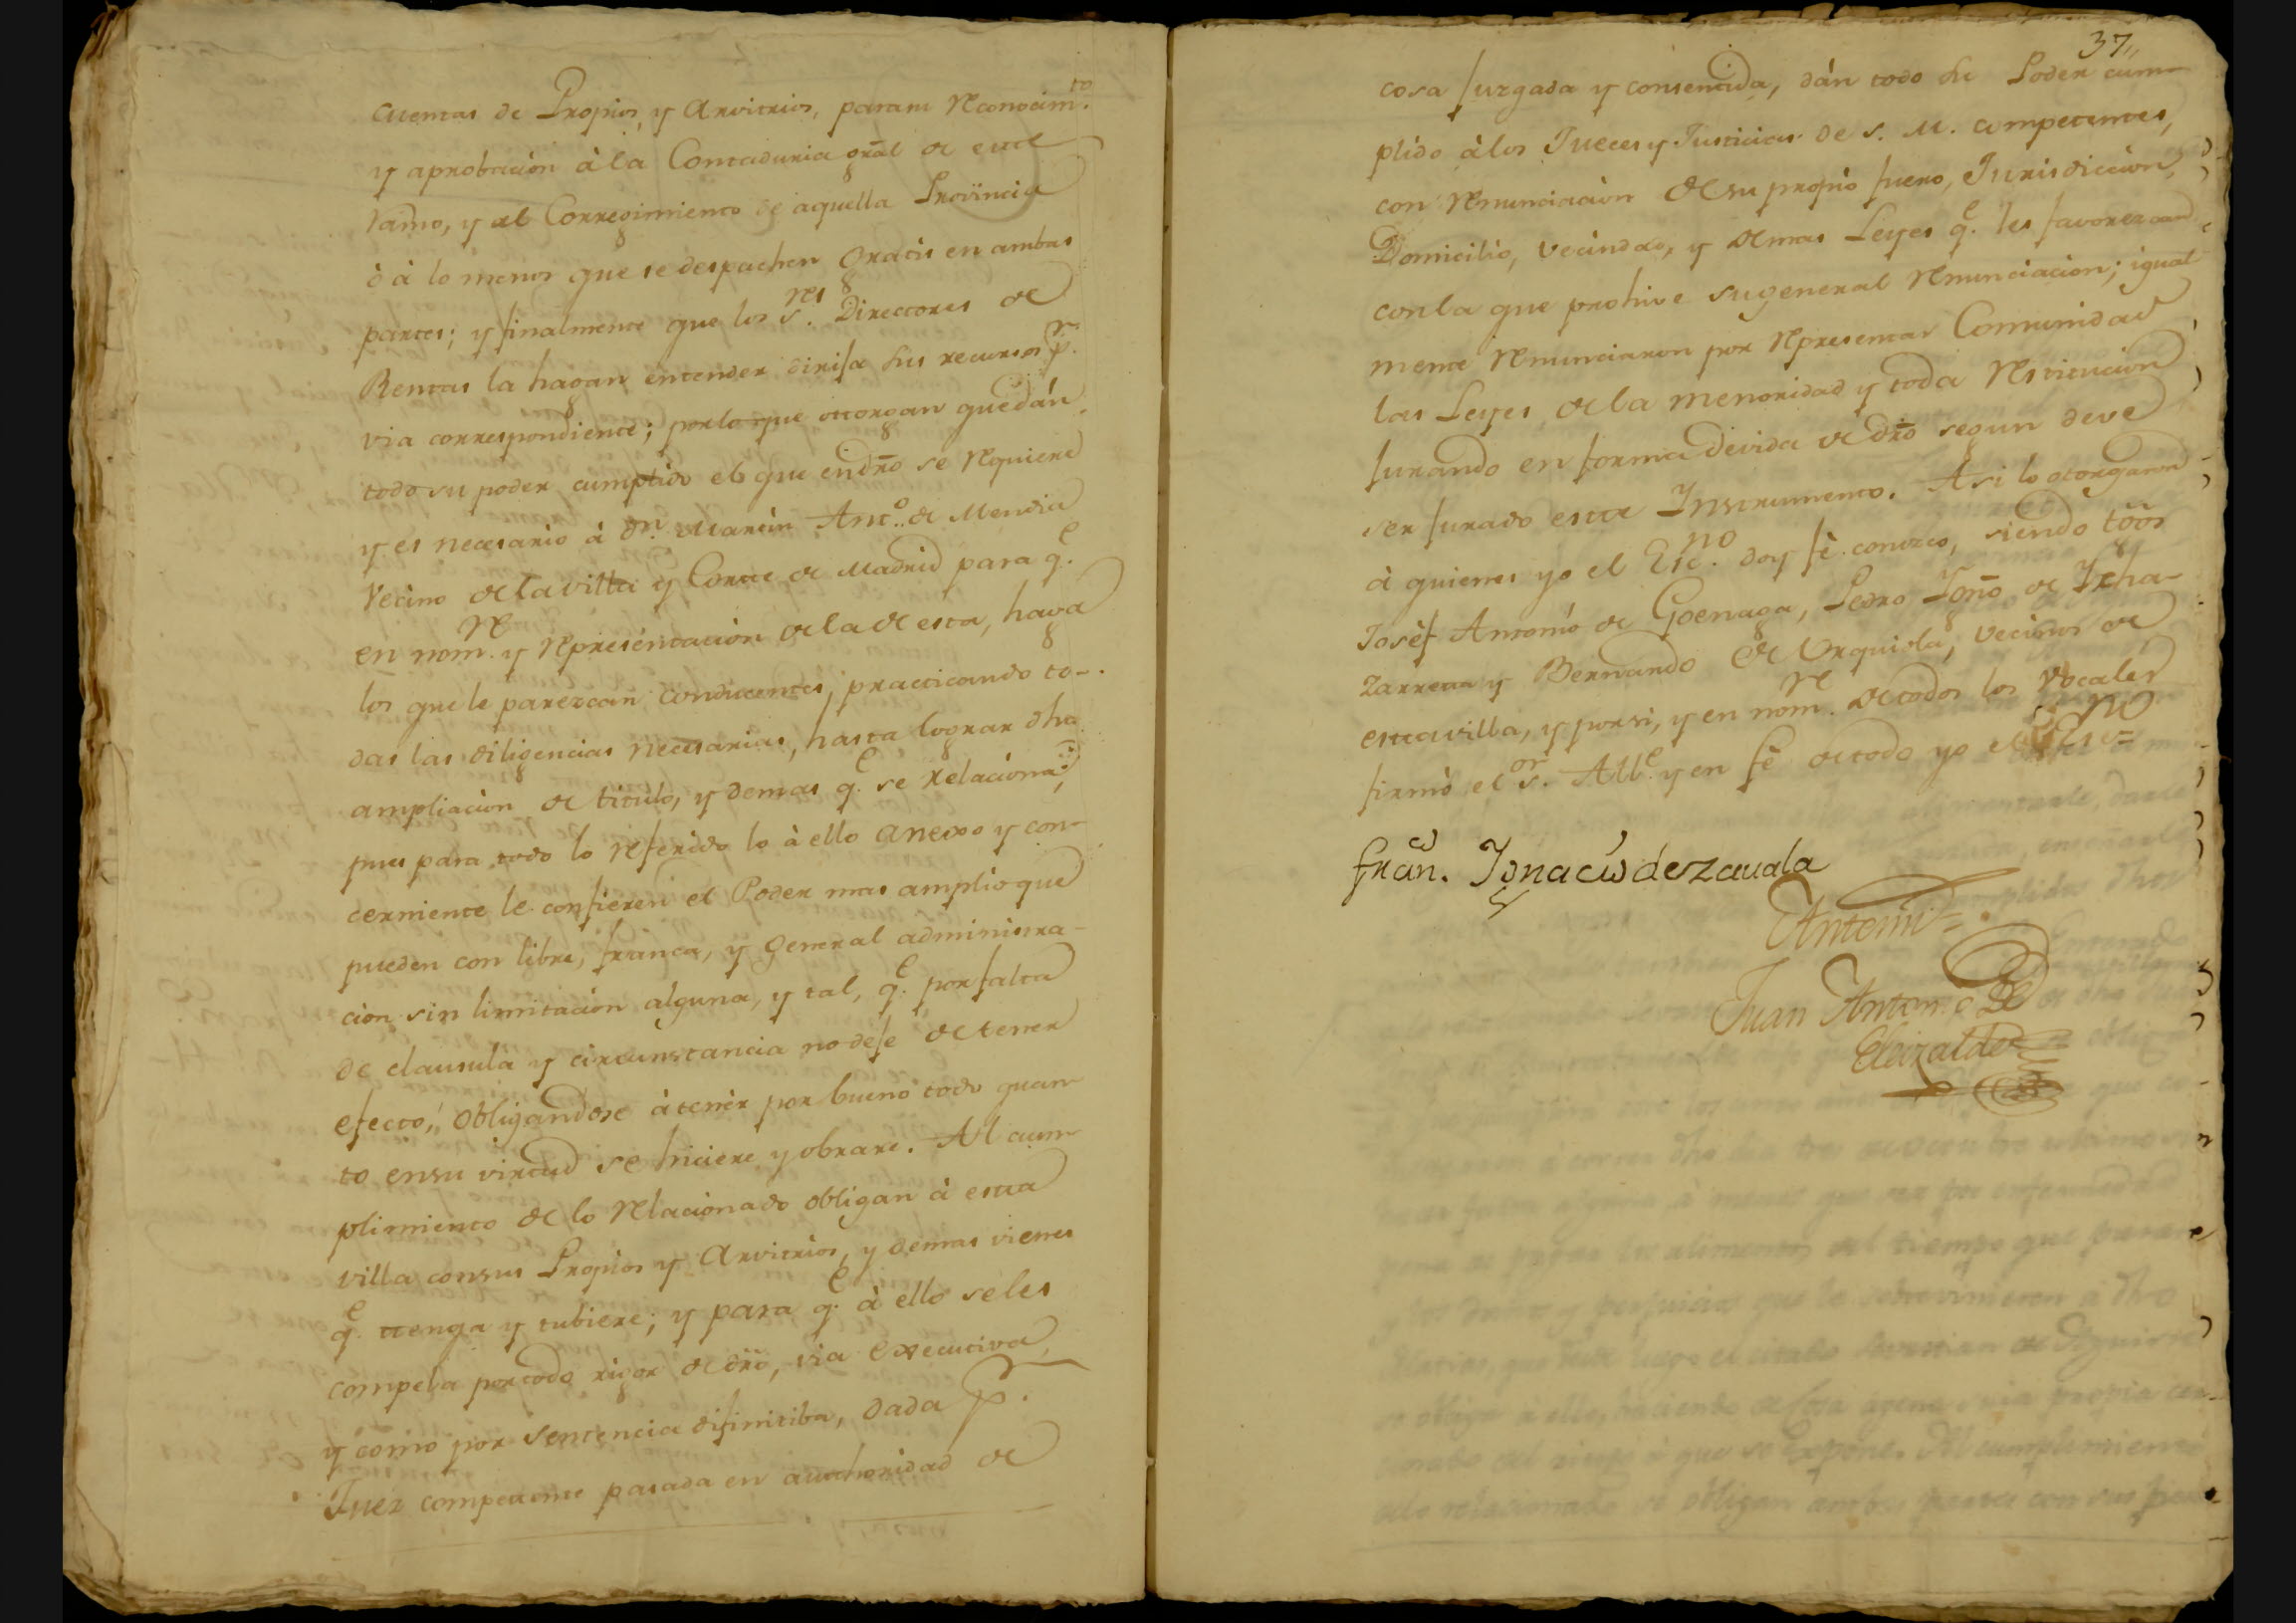 cuentas de Propios, y Arvitrios, para su reconocim.to
y aprobacion à la Contaduria gral de este
ramo, y al Corregimiento de aquella Provincia
ò à lo menos que se despachen gratis en ambas
partes; y finalmente que los s.res Directores de
Rentas la hagan entender dirija sus recursos p.r
via correspondiente; por lo que ottorgan que dán
todo su poder cumplido el que en dro se requiere
y es necesario à dn. Martin Ant.o de Mendia
vecino de la villa y Corte de Madrid para q.e
en nom.re y representacion de la de esta, haga
los que le parezcan conducentes, practicando to-
das las diligencias necesarias, hasta lograr dha
ampliacion de titulo, y demas q.e se relaciona;
pues para todo lo referido lo à ello anexo y con-
cerniente le confieren el Poder mas amplio que
pueden con libre, franca, y general administra-
cion sin limitacion alguna, y tal, q.e por falta
de clausula y circunstancia no deje de tener
efecto, obligandose à tener por bueno todo quan-
to en su virtud se hiciere y obrare. Al cum-
plimiento de lo relacionado obligan à esta
villa con sus Propios y Arvitrios, y demas vienes
q.e ttenga y tubiere; y para q.e à ello se les
compela por todo rigor de dro, via executiva,
y como por sentencia difinitiba, dada p.r
Juez competente pasada en authoridad de
37,,
cosa juzgada y consentida, dán todo su Poder cum-
plido à los Jueces y Justicias de S. M. competentes,
con renunciacion de su propio fuero, Jurisdiccion,
Domicilio, vecindad, y demas Leyes q.e les favorezcan
con la que prohive su general renunciacion; igual
mente renunciaron por representar Comunidad
las Leyes de la menoridad y toda restitucion
jurando en forma devida de dro segun deve
ser jurado este Instrumento. Asi lo otorgaron
à quienes yo el Esc.no doy fè conozco, siendo tt̃os
Josèf Antonio de Goenaga, Pedro Ign̄o de Icha-
zarreta y Bernardo de Urquiola, vecinos de
esta villa, y por si, y en nom.re de todos los vocales
firmò el s.or All.e y en fè de todo yo el Esc.no=
fran.co Ignacio de zauala
Antemi=
Juan Antonio de
Eleizalde